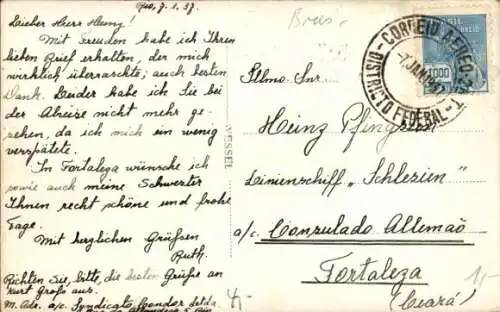 Rio, 7.1.37.
Lieber Herr Heinz!
Mit Freuden habe ich Ihren
lieben Brief erhalten, der mich
wirklich überraschte; auch besten
Dank. Leider habe ich Sie bei
der Abreise nicht mehr ge-
sehen, da ich mich ein wenig
verspätete.
In Fortaleza wünsche ich
sowie auch meine Schwester
Ihnen recht schöne und frohe
Tage.
Mit herzlichen Grüßen
Ruth.
Richten Sie, bitte, die besten Grüße an
Kurt Groß aus.
M. Adr. a/c. Syndicato Condor Ltda.
WESSEL
Bras.
CORREIO AEREO
7 JAN
DISTRICTO FEDERAL
BRASIL
CORREIO
1000
Illmo. Snr.
Heinz
Linienschiff „Schlesien"
a/c. Consulado Allemão
Fortaleza
(Ceará)